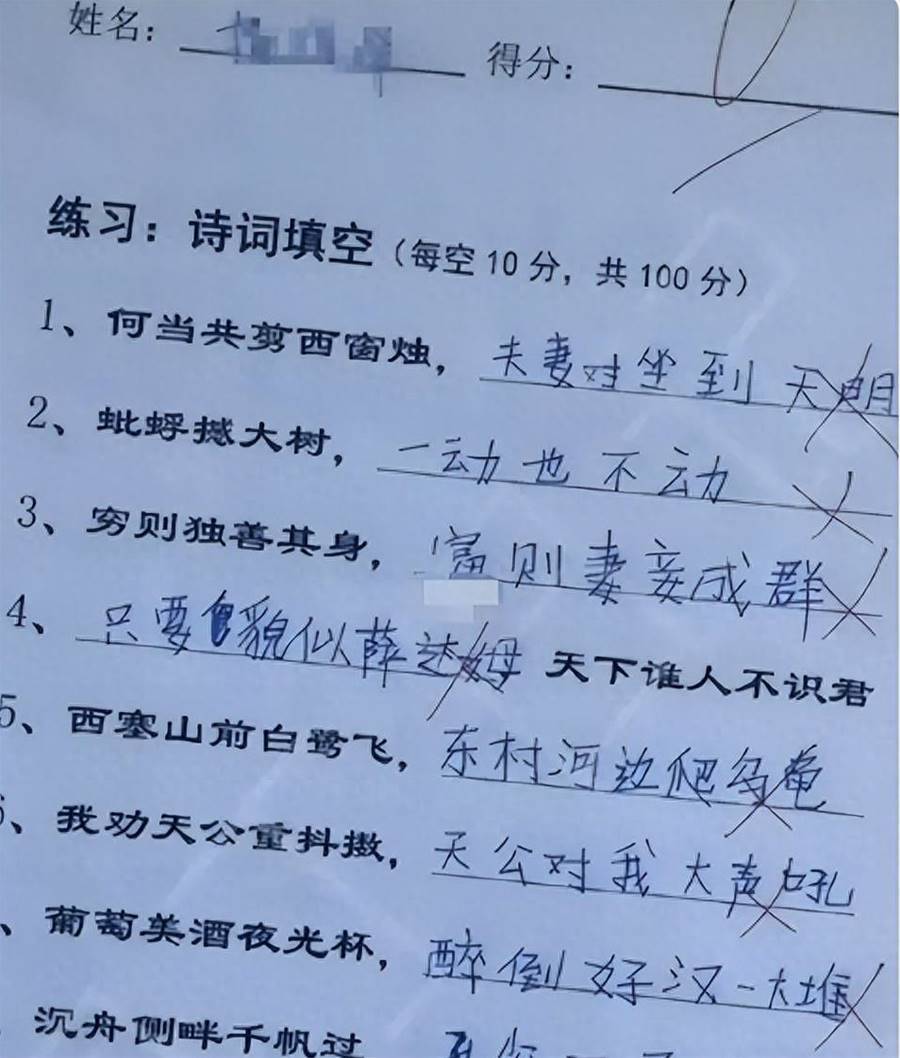 姓名： 得分： 0
练习：诗词填空（每空10分，共100分）
1、何当共剪西窗烛，夫妻对坐到天明
2、蚍蜉撼大树，一动也不动
3、穷则独善其身，富则妻妾成群
4、只要貌似薛达姆 天下谁人不识君
5、西塞山前白鹭飞，东村河边爬乌龟
、我劝天公重抖擞，天公对我大声吼
、葡萄美酒夜光杯，醉倒好汉一大堆
沉舟侧畔千帆过